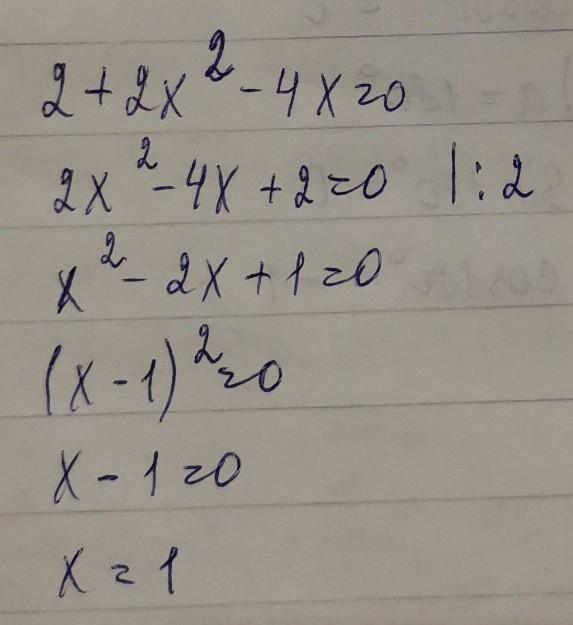 2 + 2x² - 4x = 0
2x² - 4x + 2 = 0 | : 2
x² - 2x + 1 = 0
(x - 1)² = 0
x - 1 = 0
x = 1